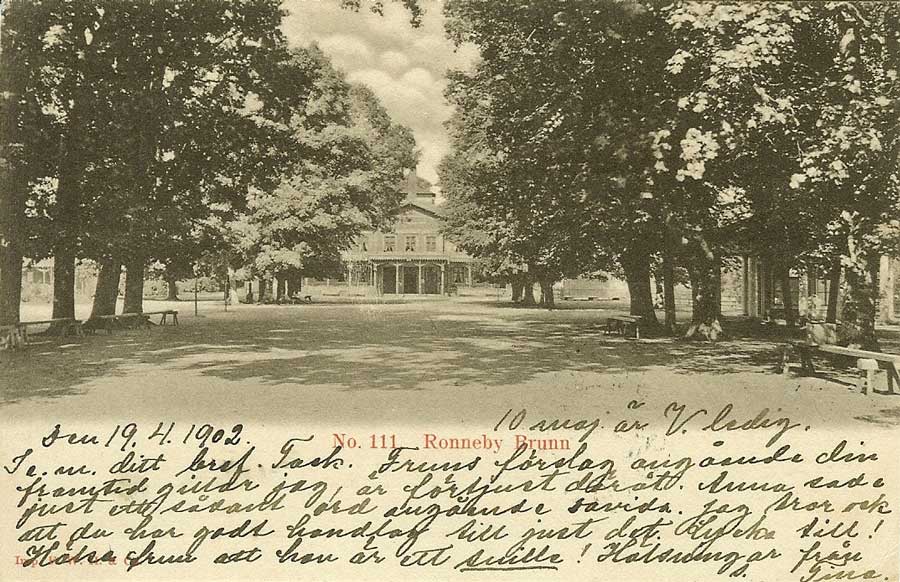 10 maj är V. ledig.
Den 19.4.1902.
No. 111. Ronneby Brunn
Te. m. ditt bref. Tack. Fruns förslag angående din
framtid gillar jag, är förtjust deråt. Anna sade
just ett sådant ord angående Davida. jag tror ock
att du har godt handlag till just det. Lycka till!
Helsa frun att hon är ett snille! Helsningar från
Tina.